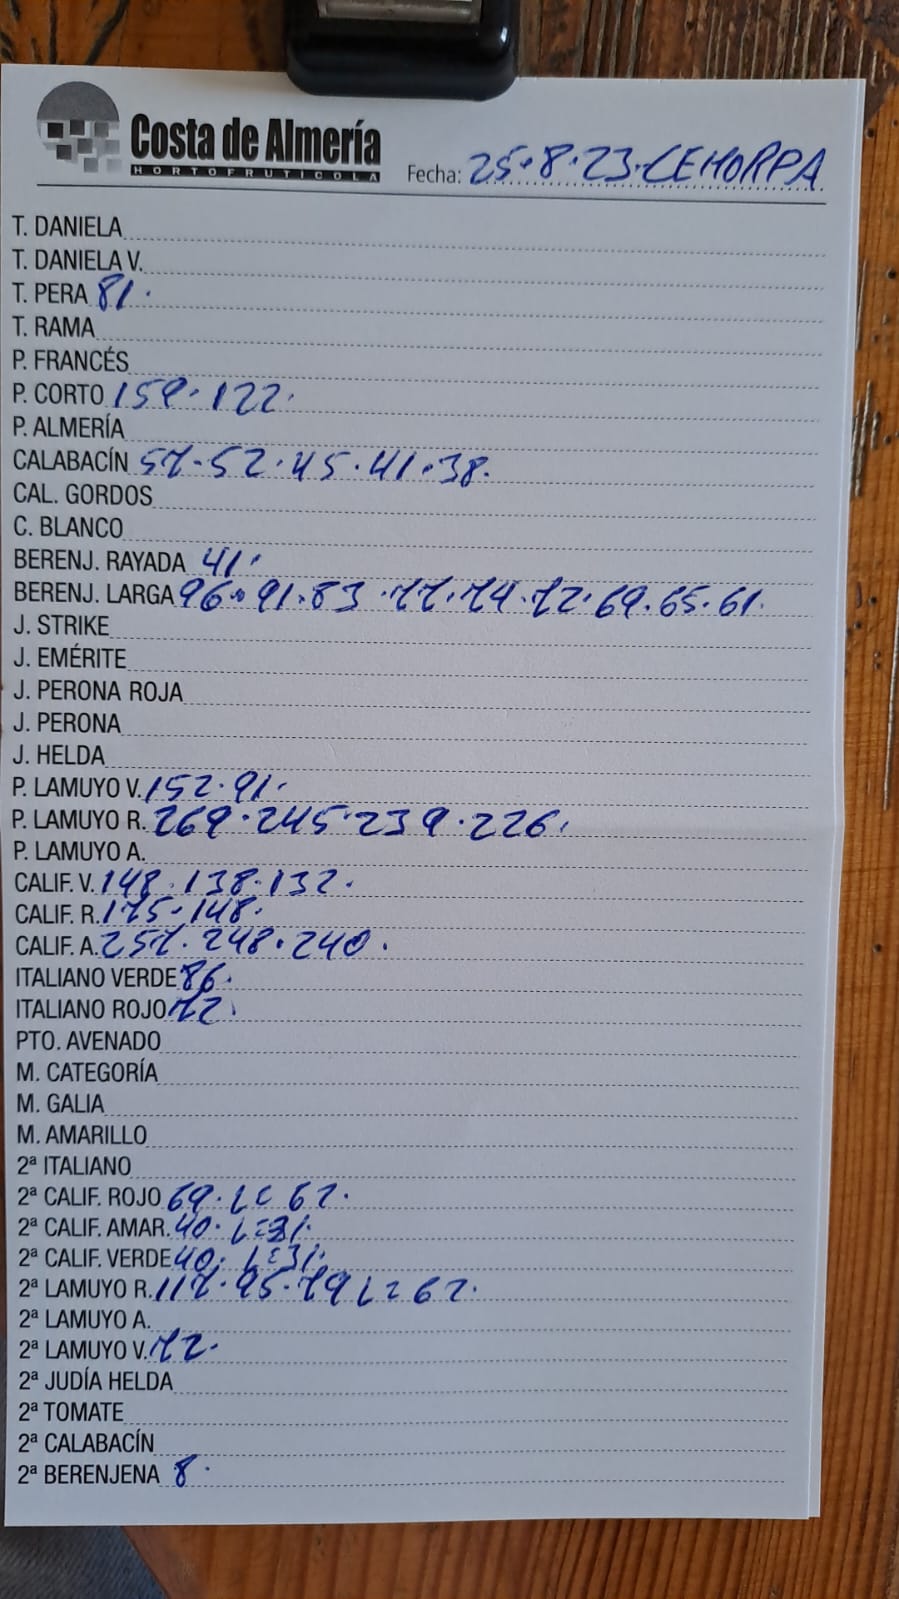 Costa de Almería
HORTOFRUTICOLA
Fecha: 25·8·23·CEHORPA
T. DANIELA
T. DANIELA V.
T. PERA 81·
T. RAMA
P. FRANCÉS
P. CORTO 159·122·
P. ALMERÍA
CALABACÍN 57·52·45·41·38·
CAL. GORDOS
C. BLANCO
BERENJ. RAYADA 41·
BERENJ. LARGA 96·91·83·77·74·72·69·65·61·
J. STRIKE
J. EMÉRITE
J. PERONA ROJA
J. PERONA
J. HELDA
P. LAMUYO V. 152·91·
P. LAMUYO R. 269·245·239·226·
P. LAMUYO A.
CALIF. V. 148·138·132·
CALIF. R. 175·148·
CALIF. A. 257·248·240·
ITALIANO VERDE 86·
ITALIANO ROJO 72·
PTO. AVENADO
M. CATEGORÍA
M. GALIA
M. AMARILLO
2ª ITALIANO
2ª CALIF. ROJO 69· LC 62·
2ª CALIF. AMAR. 40· 31·
2ª CALIF. VERDE 40· 31·
2ª LAMUYO R. 117·95·79 62·
2ª LAMUYO A.
2ª LAMUYO V. 72·
2ª JUDÍA HELDA
2ª TOMATE
2ª CALABACÍN
2ª BERENJENA 8·